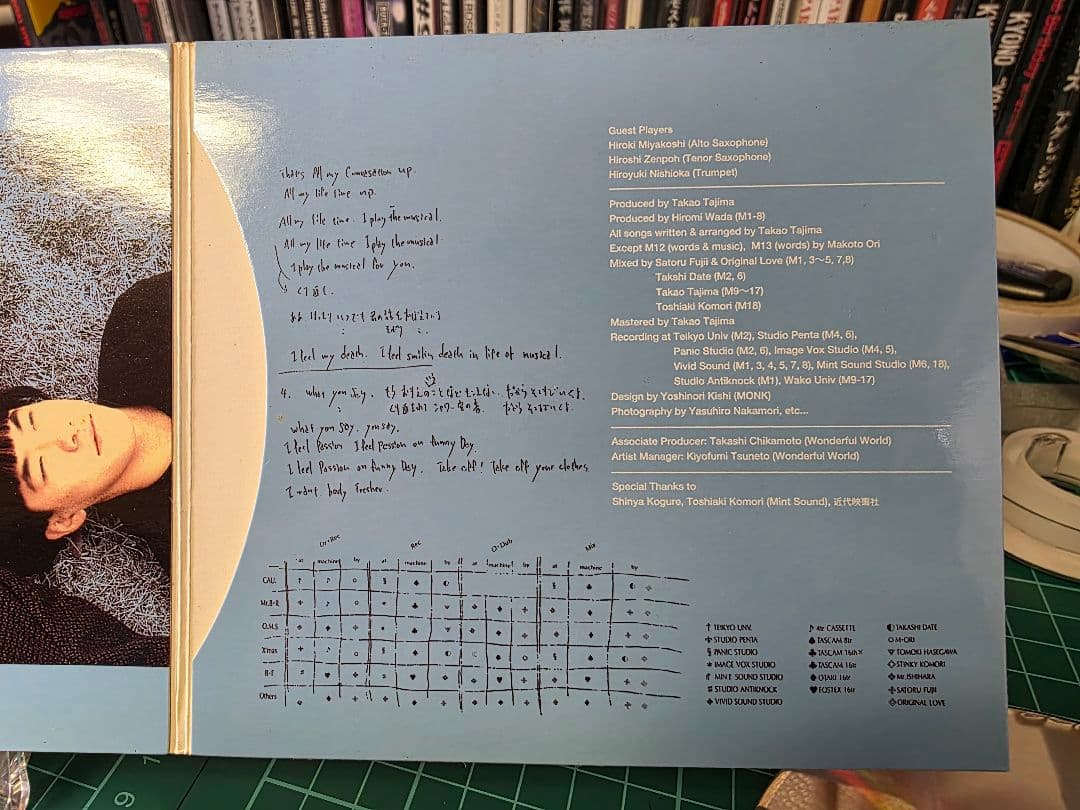 That's All my Conversation up.
All my life time up.
All my life time. I play the musical.
All my life time I play the musical
I play the musical for you.
くり返し.
I feel my death. I feel smilin death in life of musical.
4. what you say.
what you say. you say.
I feel Passion I feel Passion on funny Day.
I feel Passion on funny Day. Take off! Take off your clothes
I want body fresher.
Guest Players
Hiroki Miyakoshi (Alto Saxophone)
Hiroshi Zenpoh (Tenor Saxophone)
Hiroyuki Nishioka (Trumpet)
Produced by Takao Tajima
Produced by Hiromi Wada (M1-8)
All songs written & arranged by Takao Tajima
Except M12 (words & music), M13 (words) by Makoto Ori
Mixed by Satoru Fujii & Original Love (M1, 3～5, 7,8)
Takshi Date (M2, 6)
Takao Tajima (M9～17)
Toshiaki Komori (M18)
Mastered by Takao Tajima
Recording at Teikyo Univ (M2), Studio Penta (M4, 6),
Panic Studio (M2, 6), Image Vox Studio (M4, 5),
Vivid Sound (M1, 3, 4, 5, 7, 8), Mint Sound Studio (M6, 18),
Studio Antiknock (M1), Wako Univ (M9-17)
Design by Yoshinori Kishi (MONK)
Photography by Yasuhiro Nakamori, etc...
Associate Producer: Takashi Chikamoto (Wonderful World)
Artist Manager: Kiyofumi Tsuneto (Wonderful World)
Special Thanks to
Shinya Kogure, Toshiaki Komori (Mint Sound), 近代映画社
Ur・Rec Rec O・Dub Mix
at machine by at machine by at machine by at machine by
CAU.
Mr.B-R
O.M.S
X'mas
B-T
Others
TEIKYO UNV.
STUDIO PENTA
PANIC STUDIO
IMAGE VOX STUDIO
MINT SOUND STUDIO
STUDIO ANTIKNOCK
VIVID SOUND STUDIO
4tr CASSETTE
TASCAM 8tr
TASCAM 16tr×
TASCAM 16tr
OTARI 16tr
FOSTEX 16tr
TAKASHI DATE
M-ORI
TOMOKI HASEGAWA
STINKY KOMORI
Mr.ISHIHARA
SATORU FUJII
ORIGINAL LOVE
KYONO